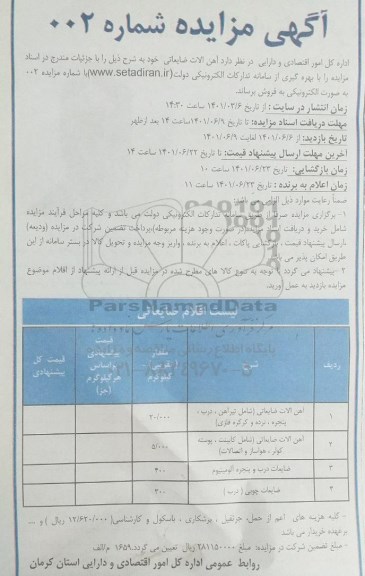 آگهی مزایده شماره ۰۰۲
اداره کل امور اقتصادی و دارایی در نظر دارد آهن آلات ضایعاتی خود به شرح ذیل را با جزئیات مندرج در اسناد
مزایده را با بهره گیری از سامانه تدارکات الکترونیکی دولت(www.setadiran.ir)با شماره مزایده ۰۰۲
به صورت الکترونیکی به فروش برساند.
زمان انتشار در سایت : از تاریخ ۱۴۰۱/۰۳/۶ ساعت ۱۴:۳۰
مهلت دریافت اسناد مزایده: تا تاریخ ۱۴۰۱/۰۶/۹ ساعت ۱۴ بعد ازظهر
تاریخ بازدید: از ۱۴۰۱/۰۶/۶ لغایت ۱۴۰۱/۰۶/۹
آخرین مهلت ارسال پیشنهاد قیمت: تا تاریخ ۱۴۰۱/۰۶/۲۲ ساعت ۱۴
زمان بازگشایی: تاریخ ۱۴۰۱/۰۶/۲۳ ساعت ۱۰
زمان اعلام به برنده : تاریخ ۱۴۰۱/۰۶/۲۳ ساعت ۱۱
ضمناً رعایت موارد ذیل الزامی می باشد:
۱- برگزاری مزایده صرفاً سامانه تدارکات الکترونیکی دولت می باشد و کلیه مراحل فرآیند مزایده
شامل خرید و دریافت اسناد وجود هزینه مربوطه)پرداخت تضمین شرکت در مزایده (ودیعه)
،ارسال پیشنهاد قیمت ، پاکات ، اعلام به برنده ، واریز وجه مزایده و تحویل کالا در بستر سامانه از این
طریق امکان پذیر می باشد
۲- پیشنهاد می گردد با توجه به تنوع کالا های مطرح شده در مزایده قبل از ارائه پیشنهاد از اقلام موضوع
مزایده بازدید به عمل آورید.
لیست اقلام ضایعاتی
ردیف شرح مقدار تقریبی کیلوگرم قیمت پیشنهادی براساس هرکیلوگرم (جز) قیمت کل پیشنهادی
۱ آهن آلات ضایعاتی (شامل تیرآهن ، درب ، پنجره ، نرده و کرکره فلزی) ۲۰/۰۰۰
۲ آهن آلات ضایعاتی (شامل کابینت ، پوسته کولر ، هواساز و اتصالات) ۵/۰۰۰
۳ ضایعات درب و پنجره آلومینیوم ۴۰۰
۴ ضایعات چوبی ( درب ) ۳۰۰
ParsNamadData
- کلیه هزینه های اعم از حمل، جرثقیل ، برشکاری ، باسکول و کارشناسی( ۱۲/۶۲۰/۰۰۰ ریال ) و ...
برعهده خریدار می باشد
- مبلغ تضمین شرکت در مزایده: مبلغ ۲۸۱۱۵۰۰۰۰ ریال تعیین می گردد.۱۶۵۹ م/الف
روابط عمومی اداره کل امور اقتصادی و دارایی استان کرمان